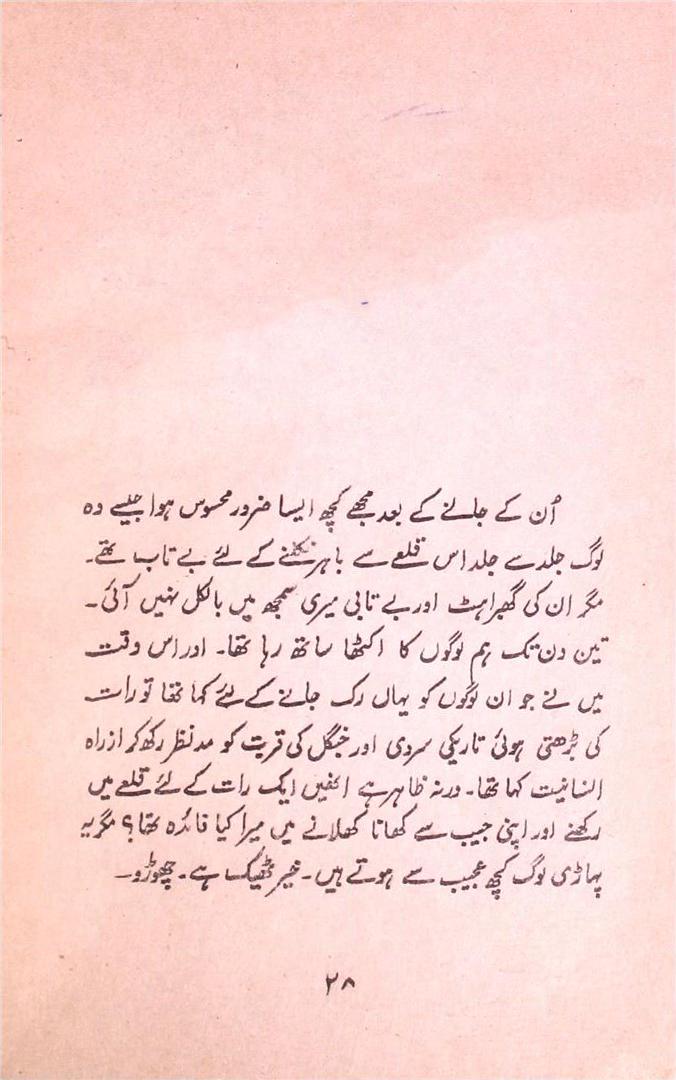 اُن کے جانے کے بعد مجھے کچھ ایسا ضرور محسوس ہوا جیسے وہ
لوگ جلد سے جلد اس قلعے سے باہر نکلنے کے لئے بے تاب تھے۔
مگر ان کی گھبراہٹ اور بے تابی میری سمجھ میں بالکل نہیں آئی۔
تین دن تک ہم لوگوں کا اکٹھا ساتھ رہا تھا۔ اور اس وقت
میں نے جو ان لوگوں کو یہاں رک جانے کے لئے کہا تھا تو رات
کی بڑھتی ہوئی تاریکی سردی اور جنگل کی قربت کو مدنظر رکھ کر ازراہ
انسانیت کہا تھا۔ ورنہ ظاہر ہے انھیں ایک رات کے لئے قلعے میں
رکھنے اور اپنی جیب سے کھانا کھلانے میں میرا کیا فائدہ تھا؟ مگر یہ
پہاڑی لوگ کچھ عجیب سے ہوتے ہیں۔ خیر ٹھیک ہے۔ چھوڑو۔
۲۸